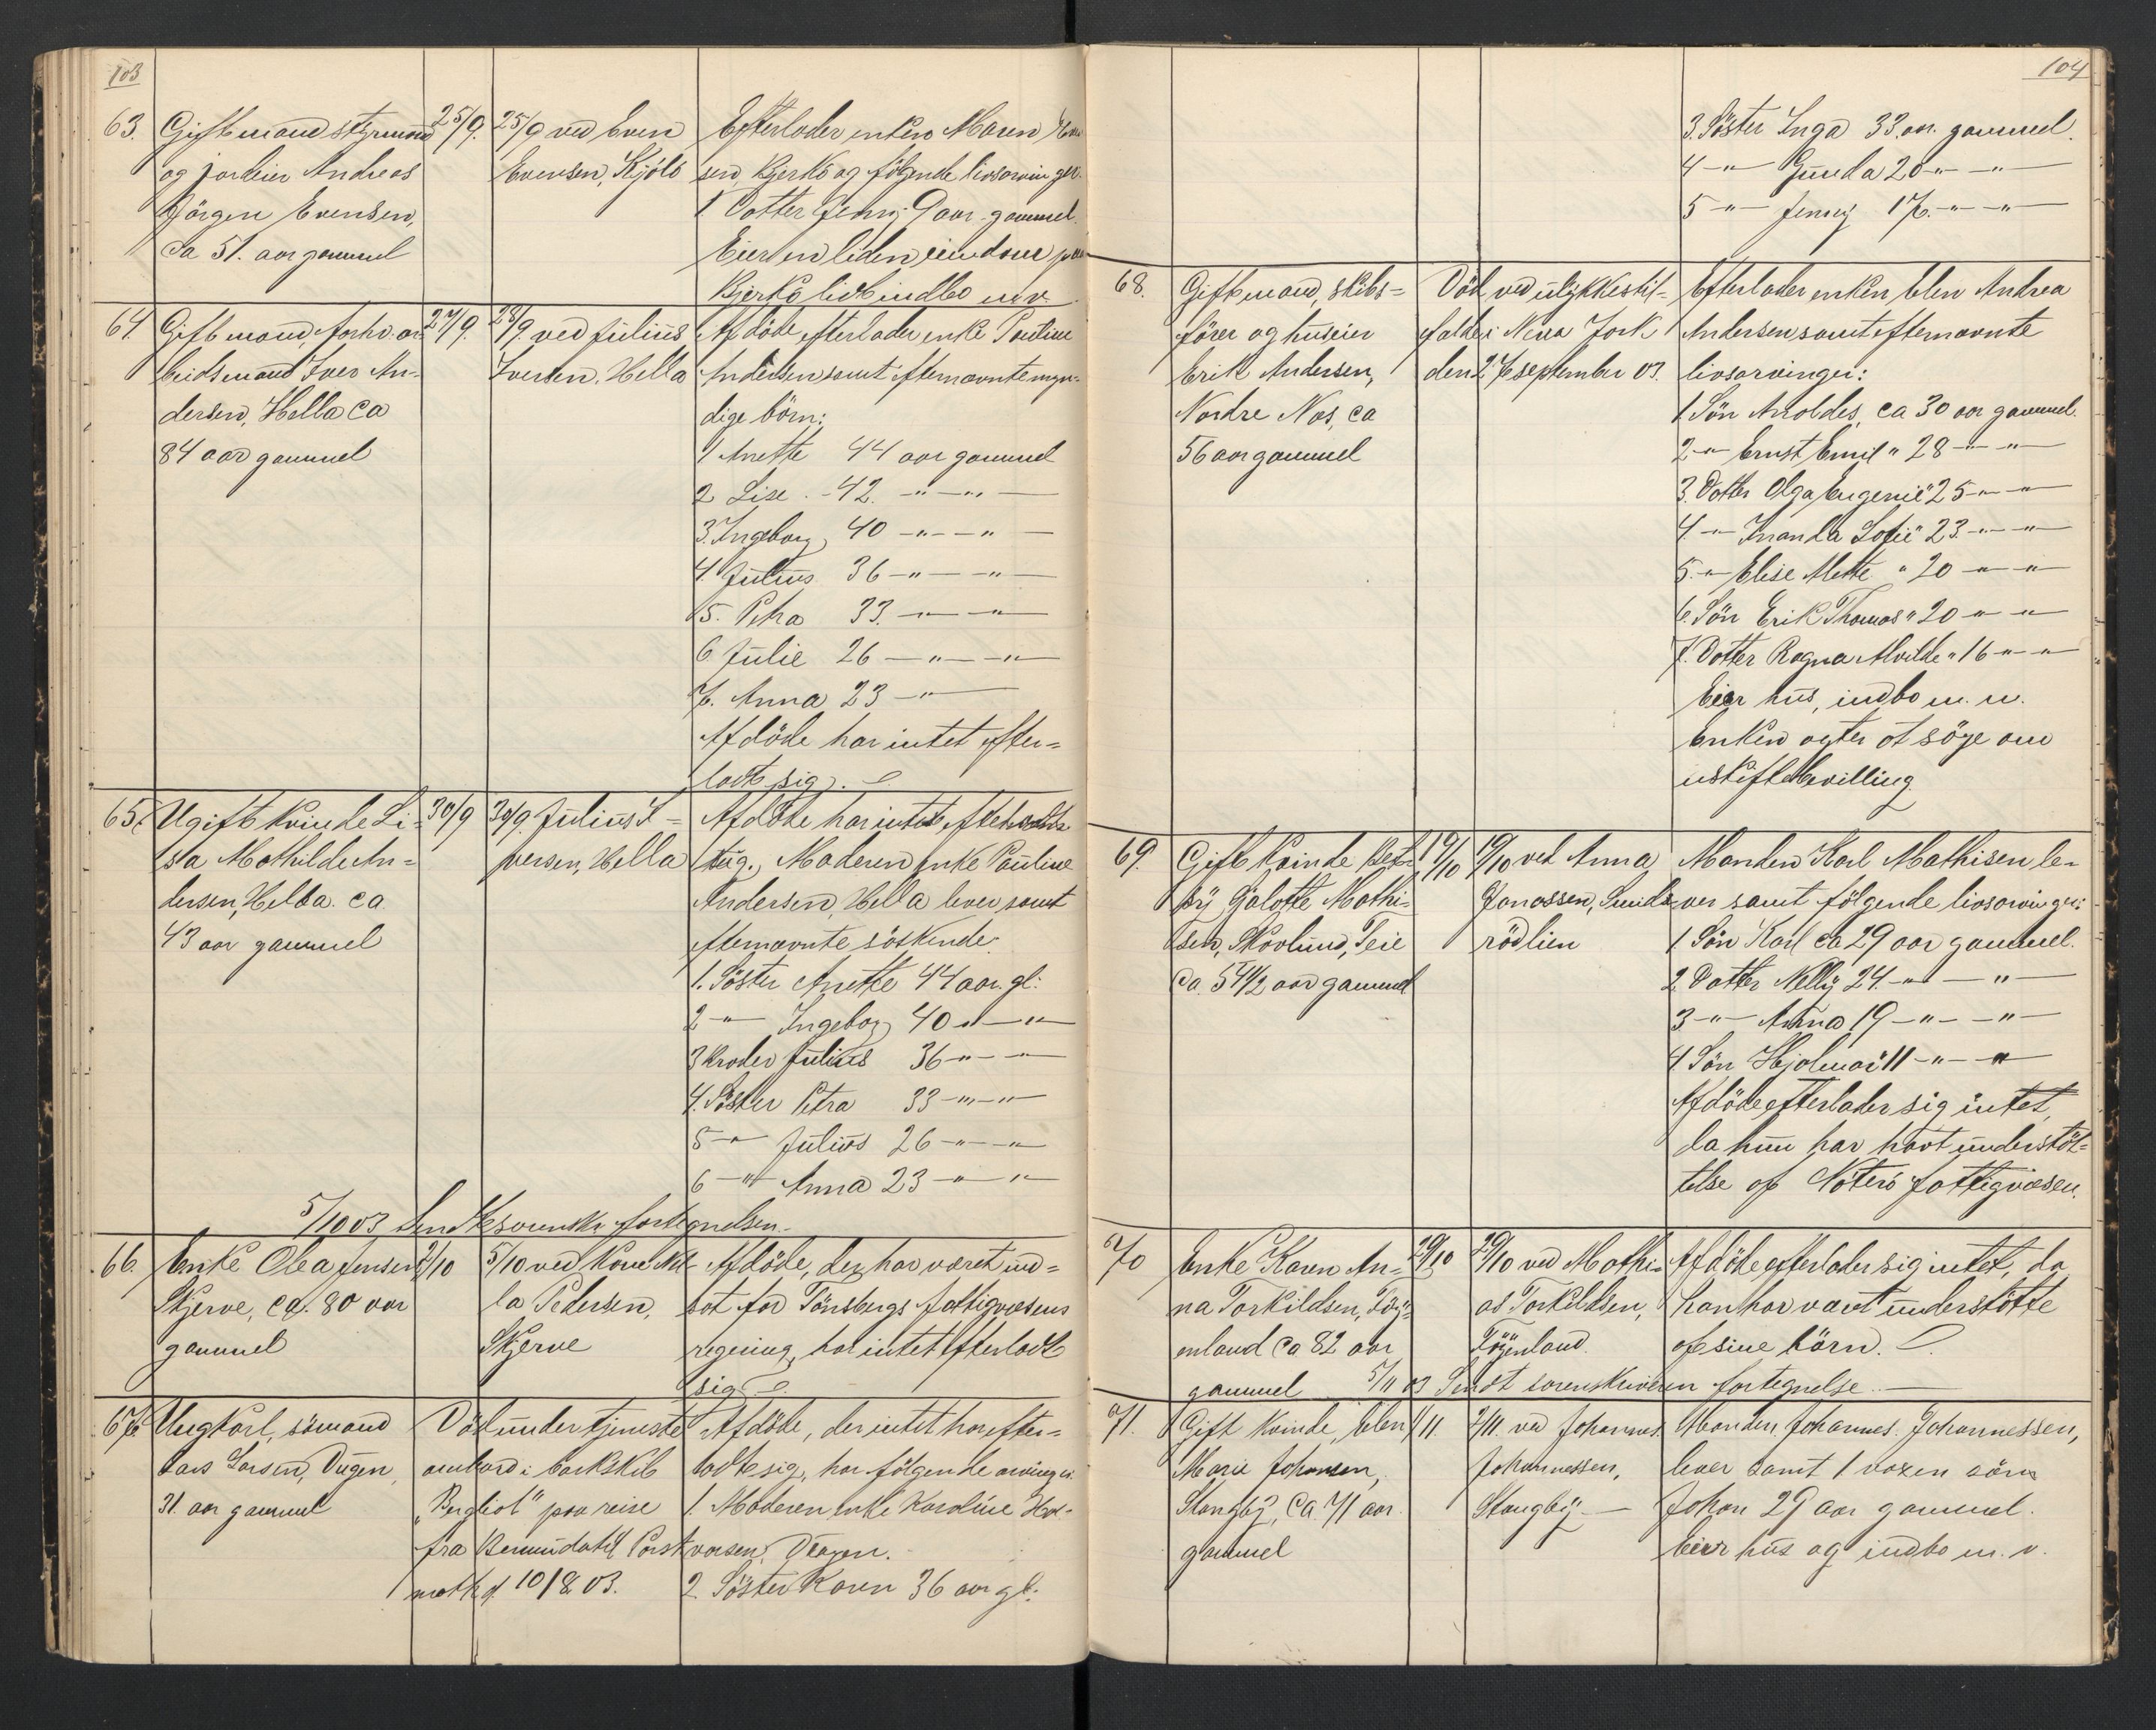 103
63. Gift mand styrmand 25/9. 25/9 ved Even Efterlader enken Maren
og jordeier Andreas Evensen, Kjøle sen, Bjerkø og følgende livsarvinger.
Jörgen Evensen, 1 Datter Jenny 9 aar gammel.
ca 51. aar gammel Eier en liden eiendom paa
Bjerkø lidt indbo m v.
64. Gift mand, forhv. ar- 27/9. 28/9. ved Julius Afdöde efterlader enke Pauline
beidsmand Iver An- Iversen, Hella Andersen samt efternævnte myn-
dersen, Hella ca dige börn:
84 aar gammel 1 Anette 44 aar gammel
2 Lise. - 42. -"- -"-
3. Ingeborg 40 -"- -"-
4. Julius 36 -"- -"-
5. Petra 33. -"- -"-
6 Julie 26 -"- -"-
7. Anna 23 -"-
Afdöde har intet efter=
ladt sig.
65. Ugift kvinde Li- 30/9 30/9. Julius I= Afdöde har intet efterladt
sa Mathilde An= versen, Hella sig. Moderen enke Pauline
dersen, Hella. ca Andersen, Hella lever samt
43 aar gammel efternævnte söskende:
1. Söster Anette 44 aar. gl:
2 -"- Ingeborg 40 -"- -"-
3 Broder Julius 36 -"- -"-
4. Söster Petra 33 -"- -"-
5 -"- Julius 26 -"- -"-
6 -"- Anna 23 -"- -"-
5/10 03 Sendt sorenskr. fortegnelsen.
66. Enke Olea Jensen 2/10 5/10 ved Kone Afdöde, der har været ind=
Skjerve, ca. 80 aar la Pedersen, sat for Tönsbergs fattigvæsens
gammel Skjerve regning, har intet efterladt
sig
67. Ungkarl, sömand Död under tjeneste Afdöde, der intet har efter=
Lars Larsen, Dugen, ombord i barkskib ladt sig, har følgende arvinger:
31. aar gammel "Bergliot" paa reise 1. Moderen enke Karoline Hal-
fra Bermuda til Ports- vorsen, Dugen.
mouth d. 10/8 03. 2. Söster Karen 36 aar gl:
104
3. Söster Inga 33. aar. gammel.
4 -"- Gunda 20 -"- -"-
5 -"- Jenny 17. -"- -"-
68. Gift mand, skibs= Död ved ulykkestil- Efterlader enken Elen Andrea
förer og huseier fælde i New York Andersen samt efternævnte
Erik Andersen, den 27 september 03. livsarvinger:
Nordre Nøs, ca 1. Sön Aroldes, ca 30 aar gammel.
56 aar gammel 2 -"- Ernst Emil " 28 -"- -"-
3. Datter Olga Eugenie " 25 -"- -"-
4 -"- Inanda Sofie " 23. -"- -"-
5. -"- Elise Mette " 20 -"- -"-
6. Sön Erik Thomas " 20 -"- -"-
7. Datter Ragna Alvilde " 16 -"- -"-
Eier hus, indbo m. m.
Enken agter at söge om
uskiftebevilling
69. Gift kvinde Bet- 19/10 19/10 ved Anna Manden Karl Mathisen le-
sy Galotte Mathi- Jonassen, Sunde ver samt fölgende livsarvinger:
sen, Skovlund, Teie rödlien 1. Sön Karl ca 29 aar gammel.
ca. 54 1/2 aar gammel 2. Datter Nelly 24. -"- -"-
3 -"- Anna 19 -"- -"-
4. Sön Hjalmar 11 -"- -"-
Afdöde efterlader sig intet,
da hun har havt understöt-
telse af Nöterö fattigvæsen.
70 Enke Karen An- 29/10 29/10 ved Mathi- Afdöde efterlader sig intet, da
na Torkildsen, Töy- as Torkildsen, han har vært understötte
enland ca 82 aar Töyenland. af sine börn.
gammel 5/11 03 Sendt sorenskriveren fortegnelse.
71. Gift kvinde, Elen 1/11. 2/11. ved Johannes Manden Johannes Johannessen,
Marie Johansen, Johannessen, lever samt 1 voxen sön
Stangby, ca 71 aar Stangby Johan 29 aar gammel.
gammel Eier hus og indbo m. v.